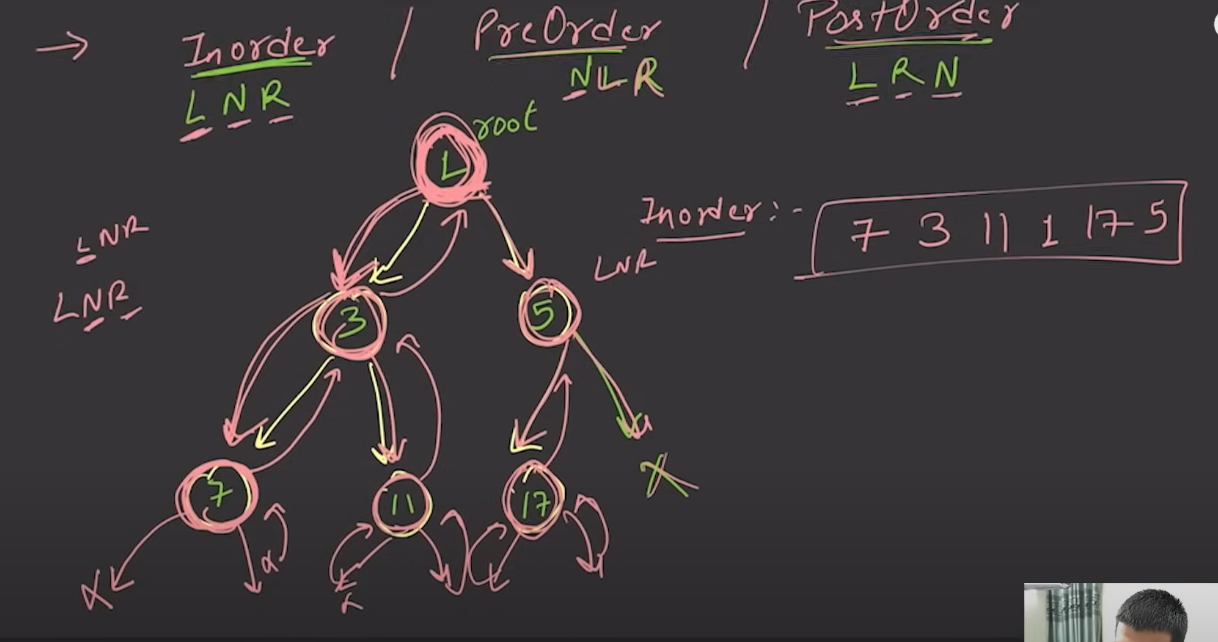 → Inorder / PreOrder / PostOrder
L N R NLR L R N
root
1
Inorder:- 7 3 11 1 17 5
LNR
LNR
LNR
3 5
7 11 17
x
x x x